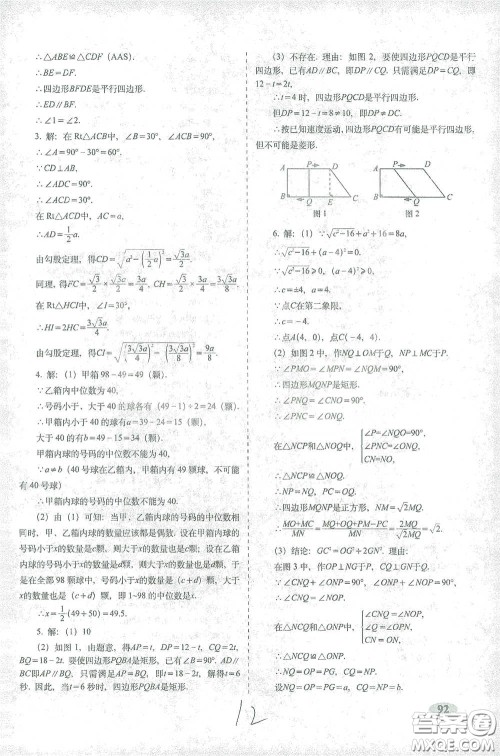 ∴△ABE≌△CDF (AAS).
∴BE=DF.
∴四边形BFDE是平行四边形.
∴ED∥BF.
∴∠1=∠2.
3. 解：在Rt△ACB中，∠B=30°，∠ACB=90°，
∴∠A=90°-30°=60°.
∵CD⊥AB，
∴∠ADC=90°.
∴∠ACD=30°.
在Rt△ACD中，AC=a，
∴AD=1/2a.
由勾股定理，得CD=√(a²-(1/2a)²)=√3a/2.
同理，得FC=√3/2×√3a/2=3a/4，CH=√3/2×3a/4=3√3a/8.
在Rt△HCI中，∠I=30°，
∴HI=2HC=3√3a/4.
由勾股定理，得CI=√((3√3a/4)²-(3√3a/8)²)=9a/8.
4. 解：(1) 甲箱98-49=49（颗）.
∵乙箱内中位数为40，
∴号码小于、大于40的球各有（49-1）÷2=24（颗）.
∴甲箱内小于40的球有a=39-24=15（颗），
大于40的球有b=49-15=34（颗）.
∵a≠b（40号球在乙箱内，甲箱内有49颗球，不可能
有40号球）
∴甲箱内球的号码的中位数不能为40.
(2) 由（1）可知：当甲、乙箱内球的号码的中位数
相同时，甲、乙箱内球的数量应该都是偶数. 设在甲箱内球的
号码小于x的数量是c颗，则大于x的数量也是c颗；设在乙箱
内球的号码小于x的数量是d颗，则大于x的数量也是d颗，于
是在全部98颗球中，号码小于x的数量是（c+d）颗，大于x
的数量也是（c+d）颗，即1~98的中位数是x.
∴x=1/2(49+50)=49.5.
5. 解：(1) 10
(2) 如图1，由题意，得AP=t，DP=12-t，CQ=2t，
BQ=18-2t. 要使四边形PQBA是矩形，已有∠B=90°，AD∥
BC即AP∥BQ，只需满足AP=BQ，即t=18-2t，解得t=
6秒. 因此，当t=6秒时，四边形PQBA是矩形.
(3) 不存在. 理由：如图2，要使四边形PQCD是平行
四边形，已有AD∥BC，即DP∥CQ. 只需满足DP=CQ，即
12-t=2t，
∴t=4时，四边形PQCD是平行四边形.
但DP=12-t=8≠10，即DP≠DC.
∴按已知速度运动，四边形PQCD可有能是平行四边形，
但不可能是菱形.
A P D
B Q E C
图1
A P D
B Q C
图2
6. 解：(1) ∵√(c²-16)+a²+16=8a，
∴√(c²-16)+(a-4)²=0.
∵√(c²-16)≥0，(a-4)²≥0，
∴c=±4，a=4.
∵点C在第二象限，
∴c=-4.
∴点A(4，0)，点C(-4，4).
(2) 如图2中，作NQ⊥OM于Q，NP⊥OC于P.
∵∠PMO=∠MPN=∠NQM=90°，
∴四边形MQNP是矩形.
∴∠PNQ=∠CNO=90°.
∴∠PNC=∠QNO.
在△NCP和△NOQ中，{∠P=∠NQO=90°，∠PNC=∠QNO，CN=NO，
∴△NCP≌△NOQ.
∴四边形MQNP是正方形，MN=√2MQ.
∴(MO+MC)/MN=(MQ+OQ+PM-PC)/MN=2MQ/√2MQ=√2.
(3) 结论：GC⁴=OG⁴+2OG². 理由：
在图3中，作OP⊥GN于P，CQ⊥GN于Q.
∵∠CNQ+∠ONP=90°，∠ONP+∠NOP=90°，
∴∠CNQ=∠NOP.
在△CNQ和△ONP中，{∠CNQ=∠NOP，∠CQN=∠OPN，CN=ON，
∴△CNQ≌△ONP.
∴NQ=OP=PG=a，CQ=NP.
设NQ=OP=PG=a，CQ=NP=b，
92
12